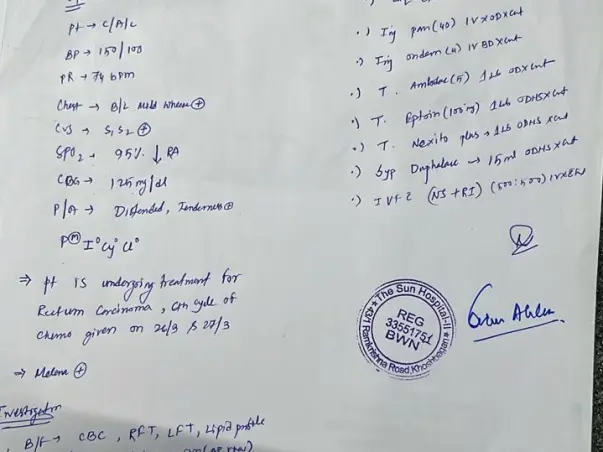 Pt → C/A/C
BP → 150/100
PR → 74 bpm
Chest → B/L mild wheeze ⊕
CVS → S1S2 ⊕
SPO2 → 95% ↓ RA
CBG → 125 mg/dl
P/A → Distended, Tenderness ⊕
I° Cy° Cl°
⇒ Pt is undergoing treatment for
Rectum Carcinoma, 6th cycle of
chemo given on 26/3 & 27/3
⇒ Melena ⊕
Investigation
B/f → CBC, RFT, LFT, Lipid profile
•) Inj pan (40) IV x OD x cnt
•) Inj ondem (4) IV BD x cnt
•) T. Amlodac (5) 1 tab OD x cnt
•) T. Eptoin (100mg) 1 tab ODHS x cnt
•) T. Nexito plus → 1 tab ODHS x cnt
•) Syp Duphalac → 15 ml ODHS x cnt
•) IVF 2 (NS + RL) (500:500) IV x
The Sun Hospital-II
REG
33551751
BWN
43/1 Ramkrishna Road, Khosbagan